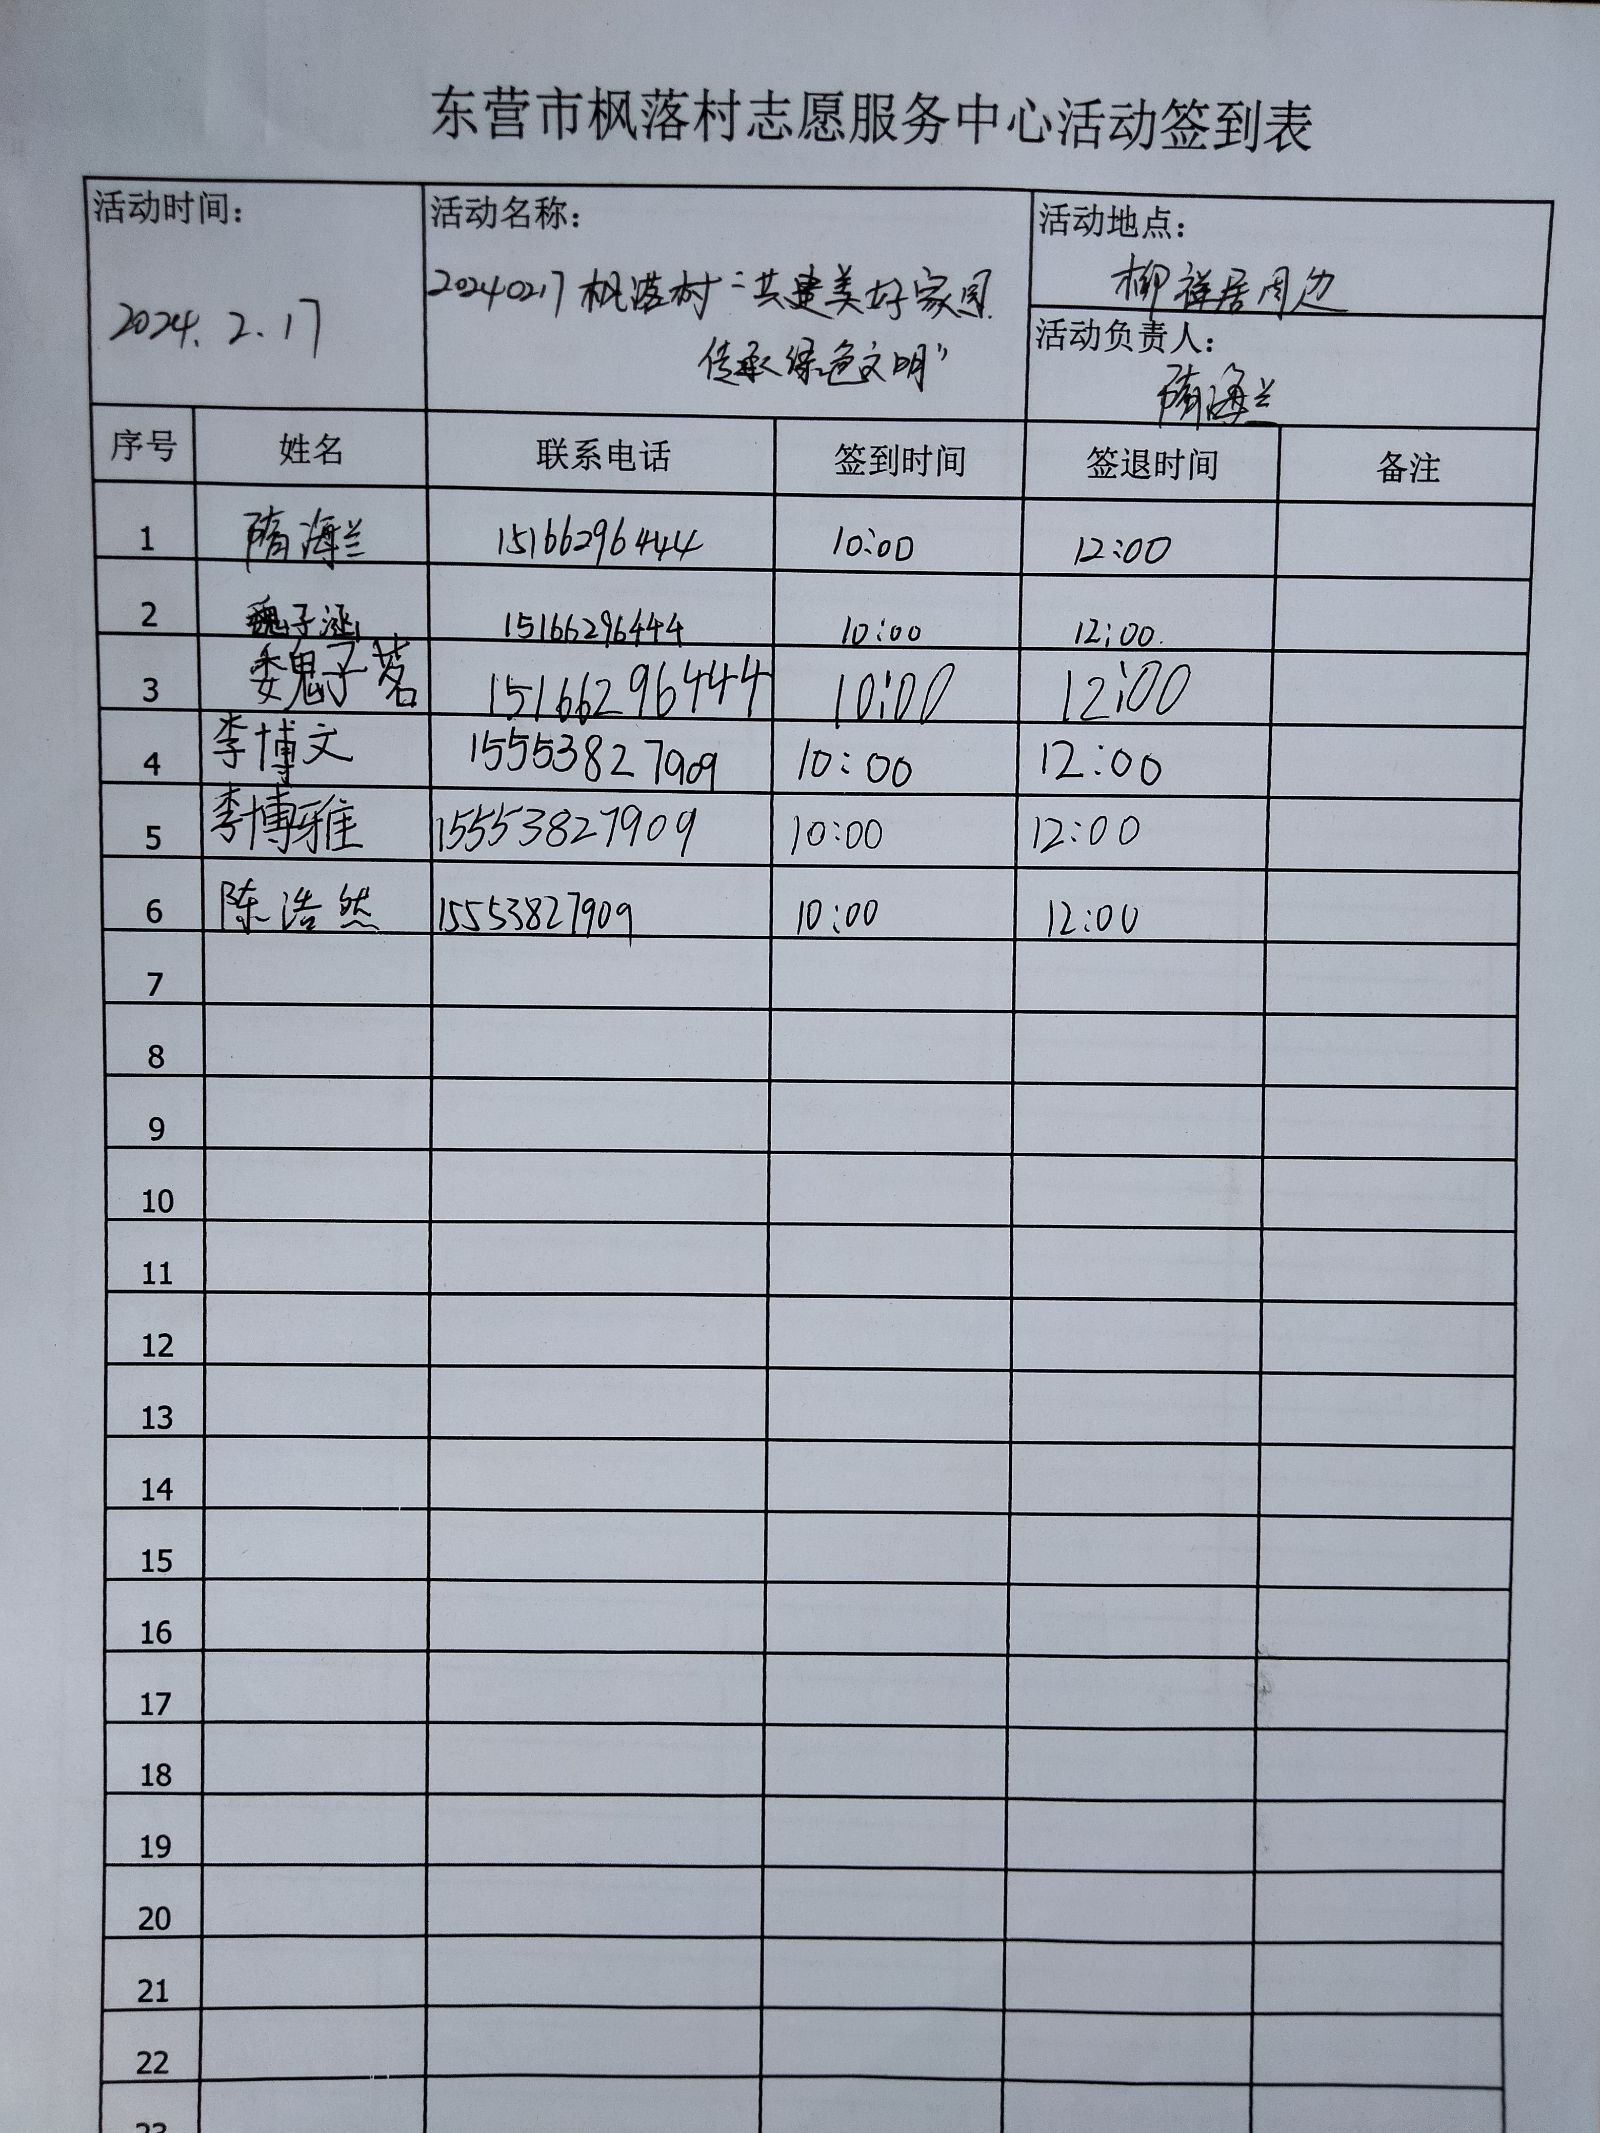 东营市枫落村志愿服务中心活动签到表
活动时间：
2024.2.17
活动名称：
20240217枫落村“共建美好家园
传承绿色文明”
活动地点：
柳祥居周边
活动负责人：
隋海兰
序号 姓名 联系电话 签到时间 签退时间 备注
1 隋海兰 15166296444 10:00 12:00
2 魏子涵 15166296444 10:00 12:00.
3 魏子茗 15166296444 10:00 12:00
4 李博文 15553827909 10:00 12:00
5 李博雅 15553827909 10:00 12:00
6 陈浩然 15553827909 10:00 12:00
7
8
9
10
11
12
13
14
15
16
17
18
19
20
21
22
23